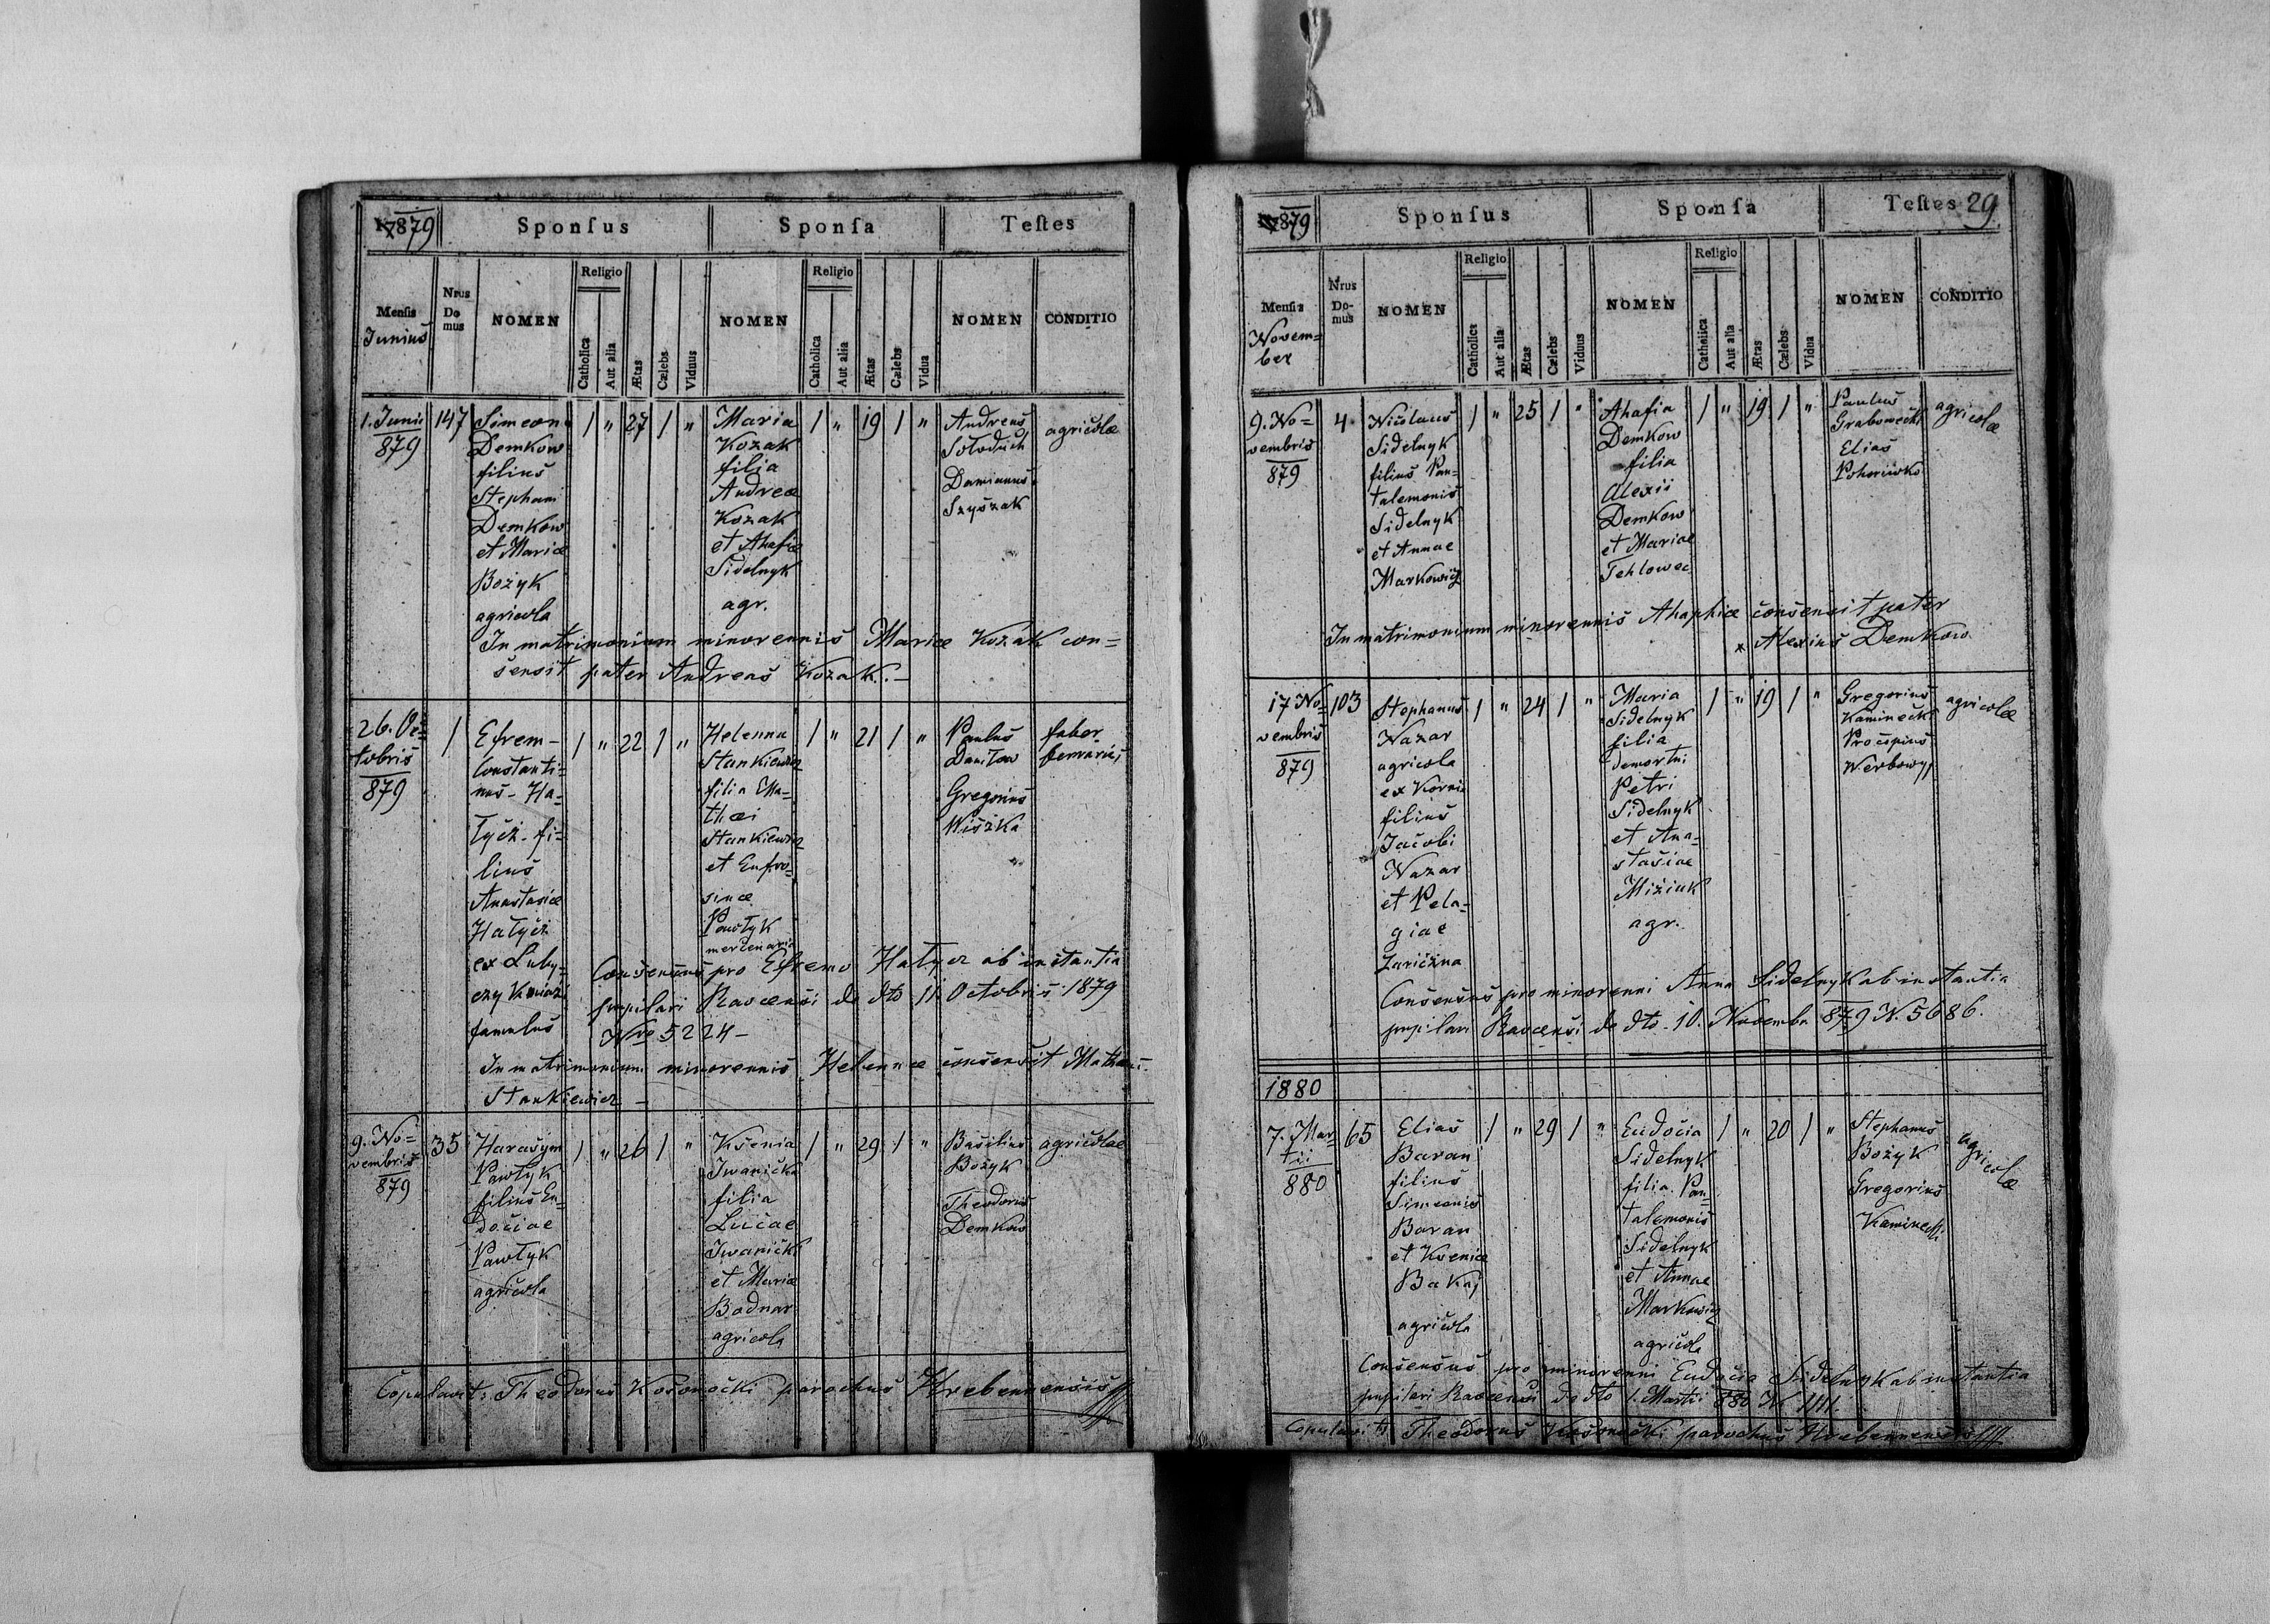 1879
Sponsus
Sponsa
Testes
Mensis
Junius
Nrus
Do
mus
NOMEN
Religio
Catholica
Aut alia
Ætas
Cælebs
Viduus
NOMEN
Religio
Catholica
Aut alia
Ætas
Cælebs
Vidua
NOMEN
CONDITIO
1. Junii
879
147
Simeon
Demkow
filius
Stephani
Demkow
et Mariæ
Bożyk
agricola
1 " 27 1 "
Maria
Kozak
filia
Andreæ
Kozak
et Ahafiæ
Sidelnyk
agr.
1 " 19 1 "
Andreas
Sołoduch
Damianus
Szyszak
agricolæ
In matrimonium minorennis Mariæ Kozak con=
sensit pater Andreas Kozak. –
26. Oc=
tobris
879
1
Efrem –
Constanti=
nus - Ha=
łycz - fi=
lius
Anastasiæ
Hałycz
ex Luby=
czy Kniazi
famulus
1 " 22 1 "
Helenna
Stankiewicz
filia Ma=
thæi
Stankiewicz
et Eufro=
sinæ
Pawłyk
mercenaria
1 " 21 1 "
Paulus
Daniłow
Gregorius
Wiszka
faber
ferrarius
Consensus pro Efremo Hałycz ab instantia
pupilari Ravcensi de dto 11 Octobris 1879
Nro 5224 –
In matrimonium minorennis Helennæ consensit Mathæus
Stankiewicz –
9. No=
vembris
879
35
Harasym
Pawłyk
filius Eu=
dociae
Pawłyk
agricola
1 " 26 1 "
Ksenia
Iwanicka
filia
Lucae
Iwanicki
et Mariæ
Bodnar
agricola
1 " 29 1 "
Basilius
Bożyk
Theodorus
Demkow
agricolae
Copulavit: Theodorus Kosonocki parochus Hrebennensis
1879
Sponsus
Sponsa
Testes 29.
Mensis
Novem=
ber
Nrus
Do-
mus
NOMEN
Religio
Catholica
Aut alia
Ætas
Cælebs
Viduus
NOMEN
Religio
Catholica
Aut alia
Ætas
Cælebs
Vidua
NOMEN
CONDITIO
9. No=
vembris
879
4
Nicolaus
Sidelnyk
filius Pan=
talemonis
Sidelnyk
et Annae
Markowicz
1 " 25 1 "
Ahafia
Demkow
filia
Alexii
Demkow
et Mariae
Tehlowec
1 " 19 1 "
Paulus
Grabowecki
Elias
agricolæ
In matrimonium minorennis Ahaphiæ consensit pater
x Alexius Demkow
17 No=
vembris
879
103
Stephanus
Nazar
agricola
ex Kornie
filius
Jacobi
Nazar
et Pela=
giae
Zariczna
1 " 24 1 "
Maria
Sidelnyk
filia
demortui
Petri
Sidelnyk
et Ana=
stasiae
Miziuk
agr.
1 " 19 1 "
Gregorius
Kaminecki
Procopius
Werbowyj
agricolæ
Consensus pro minorenni Anna Sidelnyk ab instantia
pupilari Ravcensi de dto. 10. Novembr 879 N. 5686.
1880
7. Mar=
tii
880
65
Elias
Baran
filius
Simeonis
Baran
et Kseniæ
Bakaj
agricola
1 " 29 1 "
Eudocia
Sidelnyk
filia Pan=
talemonis
Sidelnyk
et Annae
Markowicz
agricola
1 " 20 1 "
Stephanus
Bożyk
Gregorius
Kaminecki
agricolæ
Consensus pro minorenni Eudocia Sidelnyk ab instantia
pupilari Ravcensi de dto 1. Martii 880 N. 1111.
Copulavit Theodorus Kosonocki parochus Hrebennensis